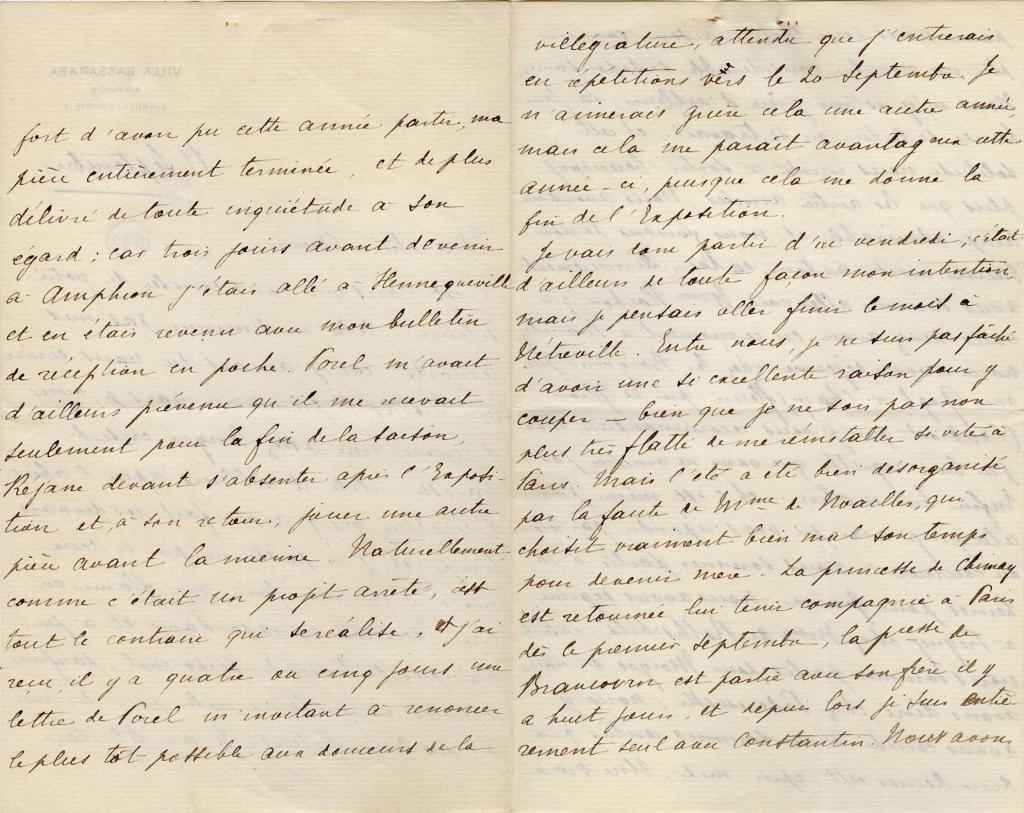 fort d'avoir pu cette année partir, ma
pièce entièrement terminée, et de plus
délivré de toute inquiétude à son
égard ; car trois jours avant de venir
à Amphion j'étais allé à Hennequeville
et en étais revenu avec mon bulletin
de réception en poche. Porel m'avait
d'ailleurs prévenu qu'il me recevait
seulement pour la fin de la saison,
Réjane devant s'absenter après l'Exposi-
tion et, à son retour, jouer une autre
pièce avant la mienne. Naturellement,
comme c'était un projet arrêté, c'est
tout le contraire qui se réalise, et j'ai
reçu, il y a quatre ou cinq jours, une
lettre de Porel m'invitant à renoncer
le plus tôt possible aux douceurs de la
villégiature, attendu que j'entrerais
en répétitions vers le 20 Septembre. Je
n'aimerais guère cela une autre année,
mais cela me paraît avantageux cette
année-ci, puisque cela me donne la
fin de l'Exposition.
Je vais donc partir d'ici vendredi ; c'était
d'ailleurs de toute façon mon intention,
mais je pensais aller finir le mois à
Métreville. Entre nous, je ne suis pas fâché
d'avoir une si excellente raison pour y
couper — bien que je ne sois pas non
plus très flatté de me réinstaller si vite à
Paris. Mais l'été a été bien désorganisé
par la faute de Mme de Noailles, qui
choisit vraiment bien mal son temps
pour devenir mère. La princesse de Chimay
est retournée lui tenir compagnie à Paris
dès le premier septembre, la pcesse de
Brancovan est partie avec son frère il y
a huit jours, et depuis lors je suis entiè-
rement seul avec Constantin. Nous avons
VILLA BASSARABA
AMPHION